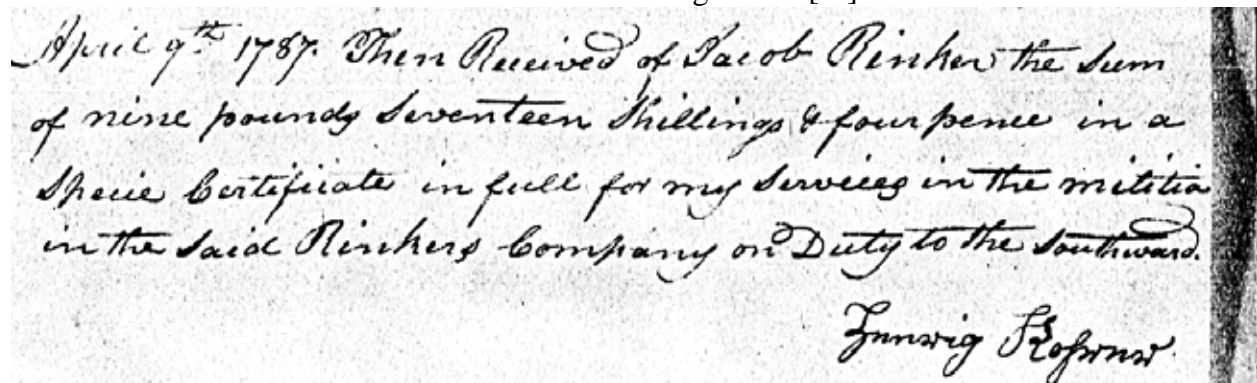 April 9th 1787. Then Received of Jacob Rinker the Sum
of nine pounds Seventeen Shillings & four pence in a
Specie Certificate in full for my Services in the militia
in the Said Rinkers Company on Duty to the Southward.